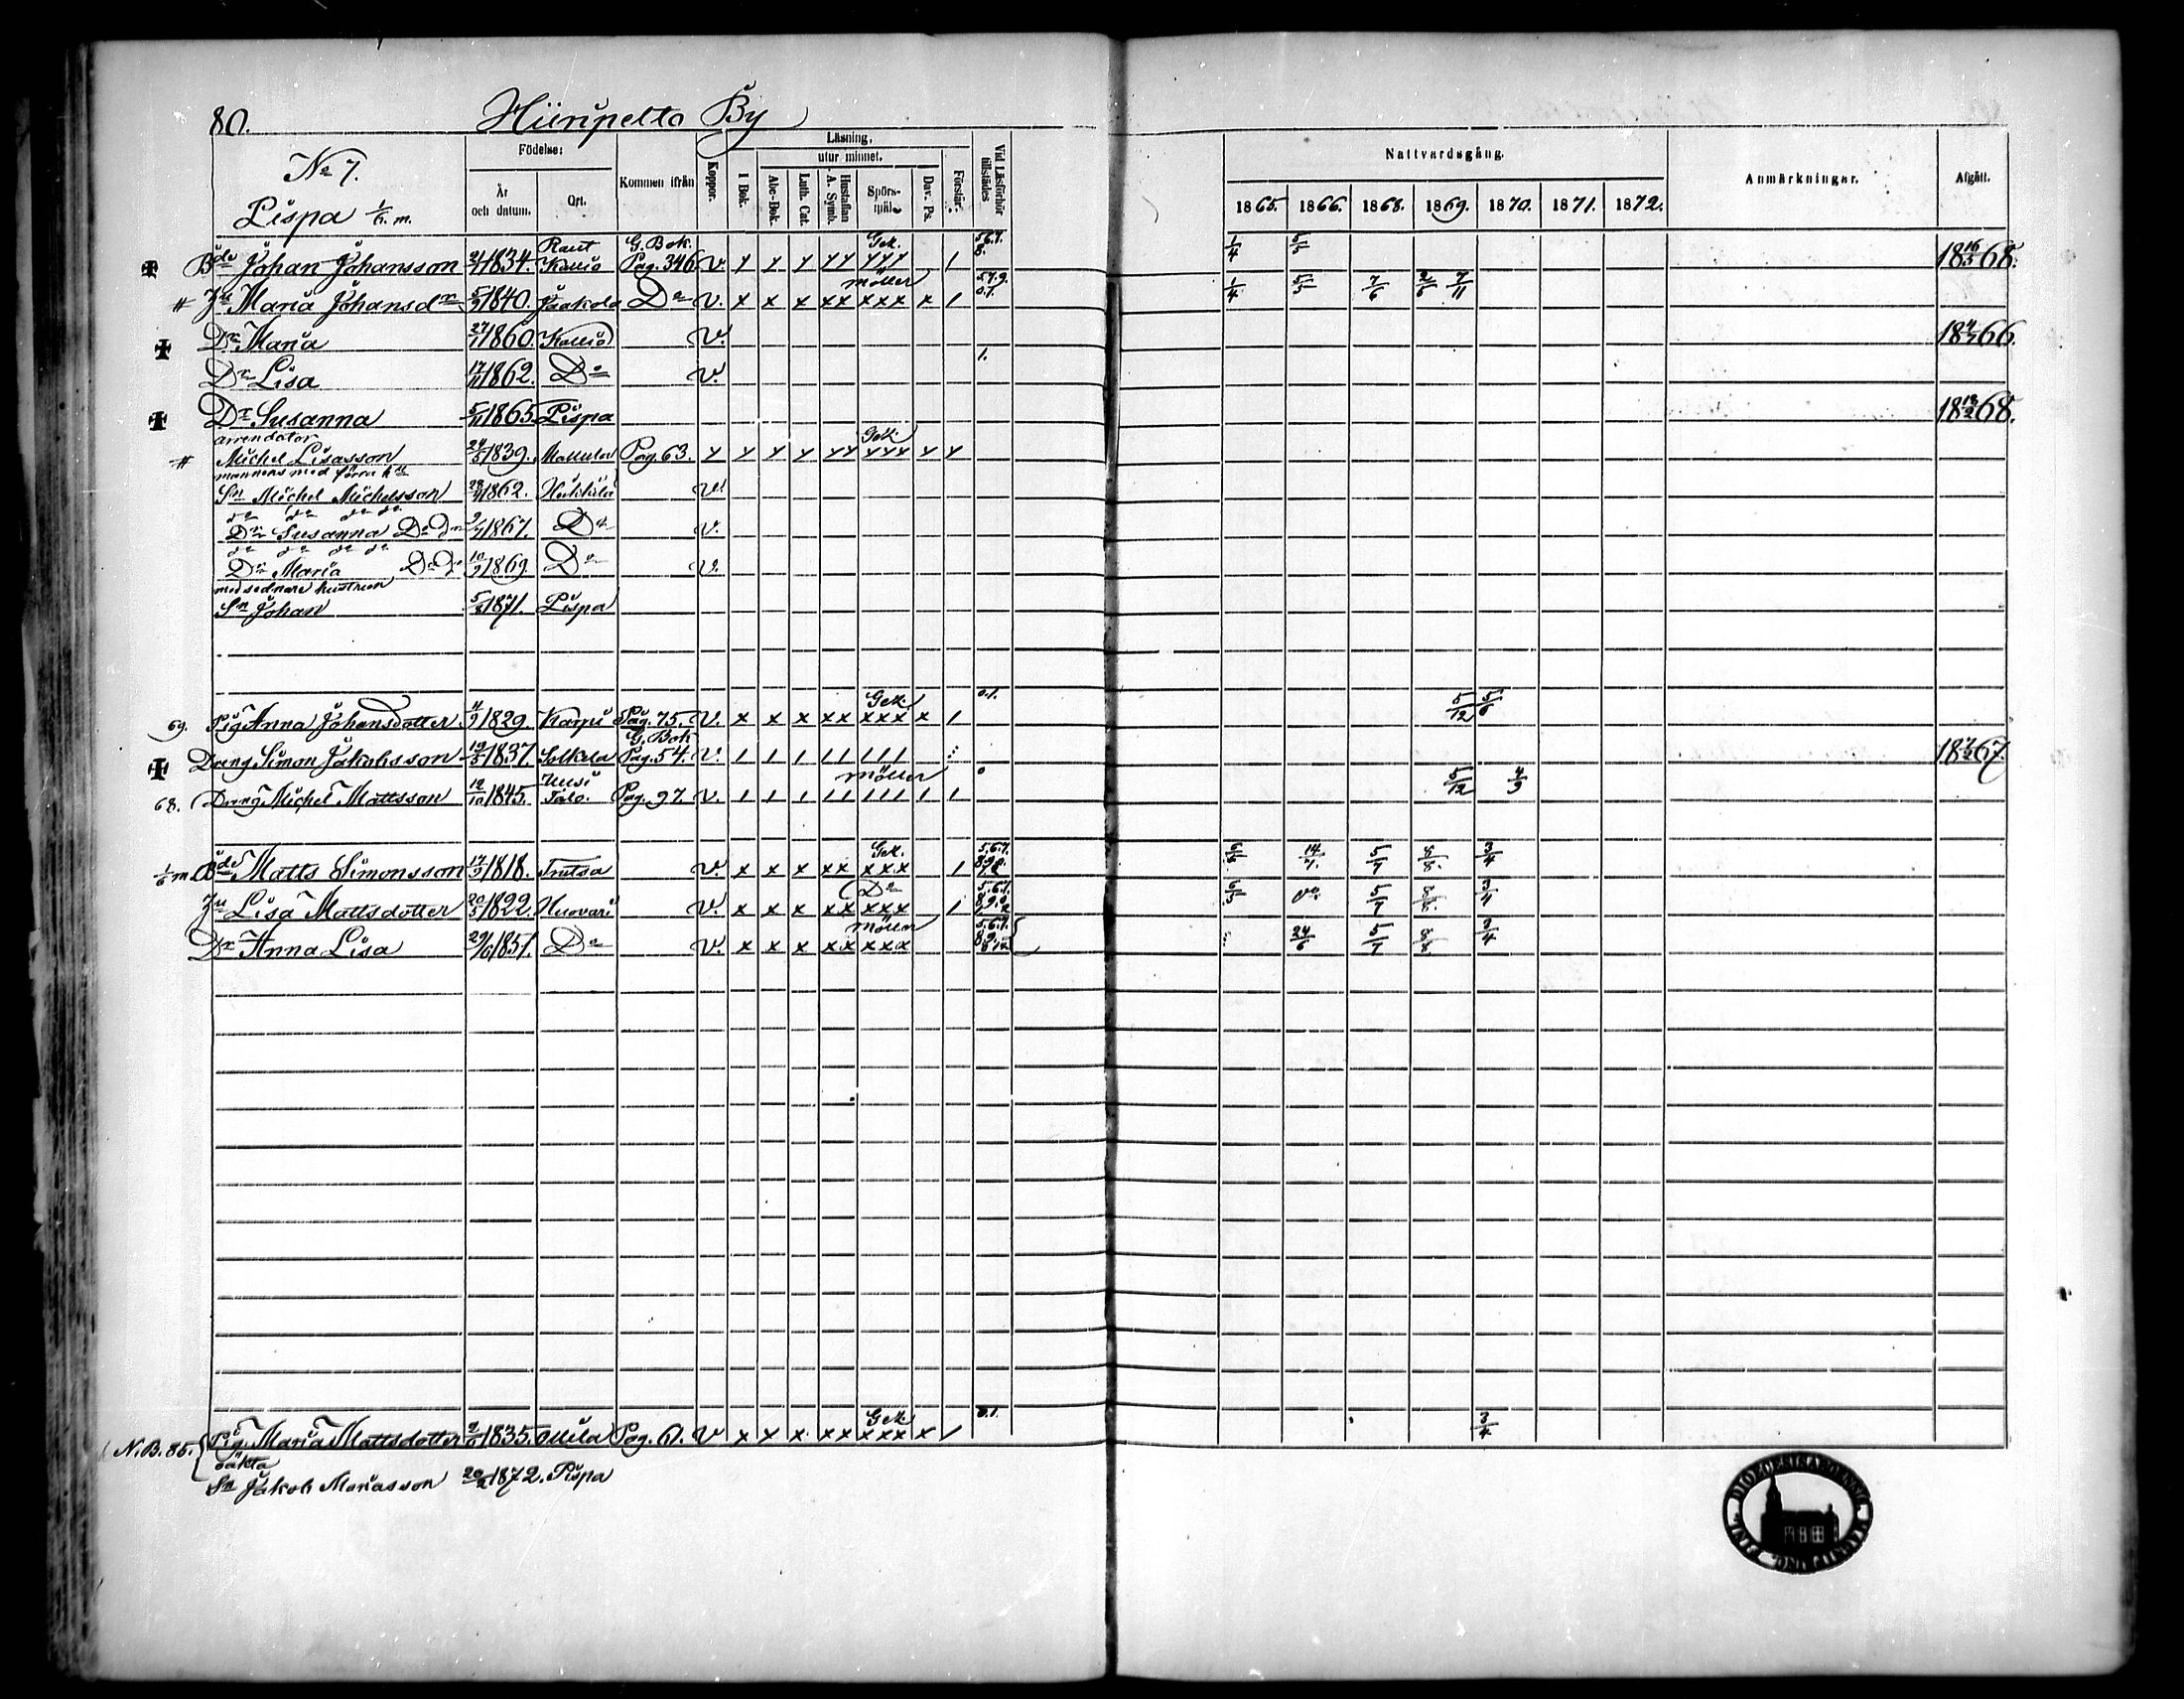 80. Hiiripelto By
No 7.
Pispa 1/6 m.
Födelse:
År och datum.
Ort.
Kommen ifrån
Koppor.
Läsning.
utur minnet.
I Bok.
Abc-Bok.
Luth. Cat.
Hustaflan A. Symb.
Spörs-mål.
Dav. Ps.
Förstår.
Vid Läsförhör tillstädes
Nattvardsgång.
1865. 1866. 1868. 1869. 1870. 1871. 1872.
Anmärkningar.
Afgått.
Bde Johan Johansson 21/1 1834. Raut Kallio G. Bok. Pag. 346 v. Gek. 5.6.7. 8. 1/4 5/5 18 16/5 68.
Hu Maria Johansdr 5/9 1840. Jaakola Do v. x x x xx möller xxx x 1 5.7.9. 0.1. 1/4 5/5 7/6 2/6 7/11
Dr Maria 27/1 1860. Kallio v. 18 4/7 66.
Dr Lisa 17/11 1862. Do v. 1.
Dr Susanna 5/11 1865. Pispa 18 13/2 68.
arrendator
Michel Lisasson 24/5 1839. Mattila Pag. 63. Gek.
mannens med förra h
Sn Michel Michelsson 1862. v.
Dr Susanna Do Do 1867. Do v.
Dr Maria Do Do 10/9 1869 Do v.
med sednare hustrun
Sn Johan 5/8 1871. Pispa
69. Pig. Anna Johansdotter 11/9 1829. Karpi Pag. 75. v. x x x xx Gek. xxx x 1 0.1. 5/12 5/6
Dreng Simon Jakobsson 19/5 1837. Solkela G. Bok Pag. 54. v. 18 7/2 67.
68. Dreng Michel Mattsson 12/10 1845. Uusi Talo. Pag. 97. v. möller 0 5/12 4/9
1/6 m. Bde Matts Simonsson 17/9 1818. v. x x x xx Gek. xxx 1 5.6.7. 14/7. 5/7 8/8. 3/4
Hu Lisa Mattsdotter 20/5 1822. Huovari v. x x x xx Do xxx 1 5.6.7. 5/7 8/8.
Dr Anna Lisa 29/6 1851. Do v. x x x xx möller xxx 5.6.7. 24/6 5/7 8/8. 3/4
N.B. 85. Pig. Maria Mattsdotter 1835. Ollila Pag. 61. v x x x xx Gek xxx x 1 0.1. 3/4
oäkta
Sn Jakob Mariasson 20/2 1872. Pispa